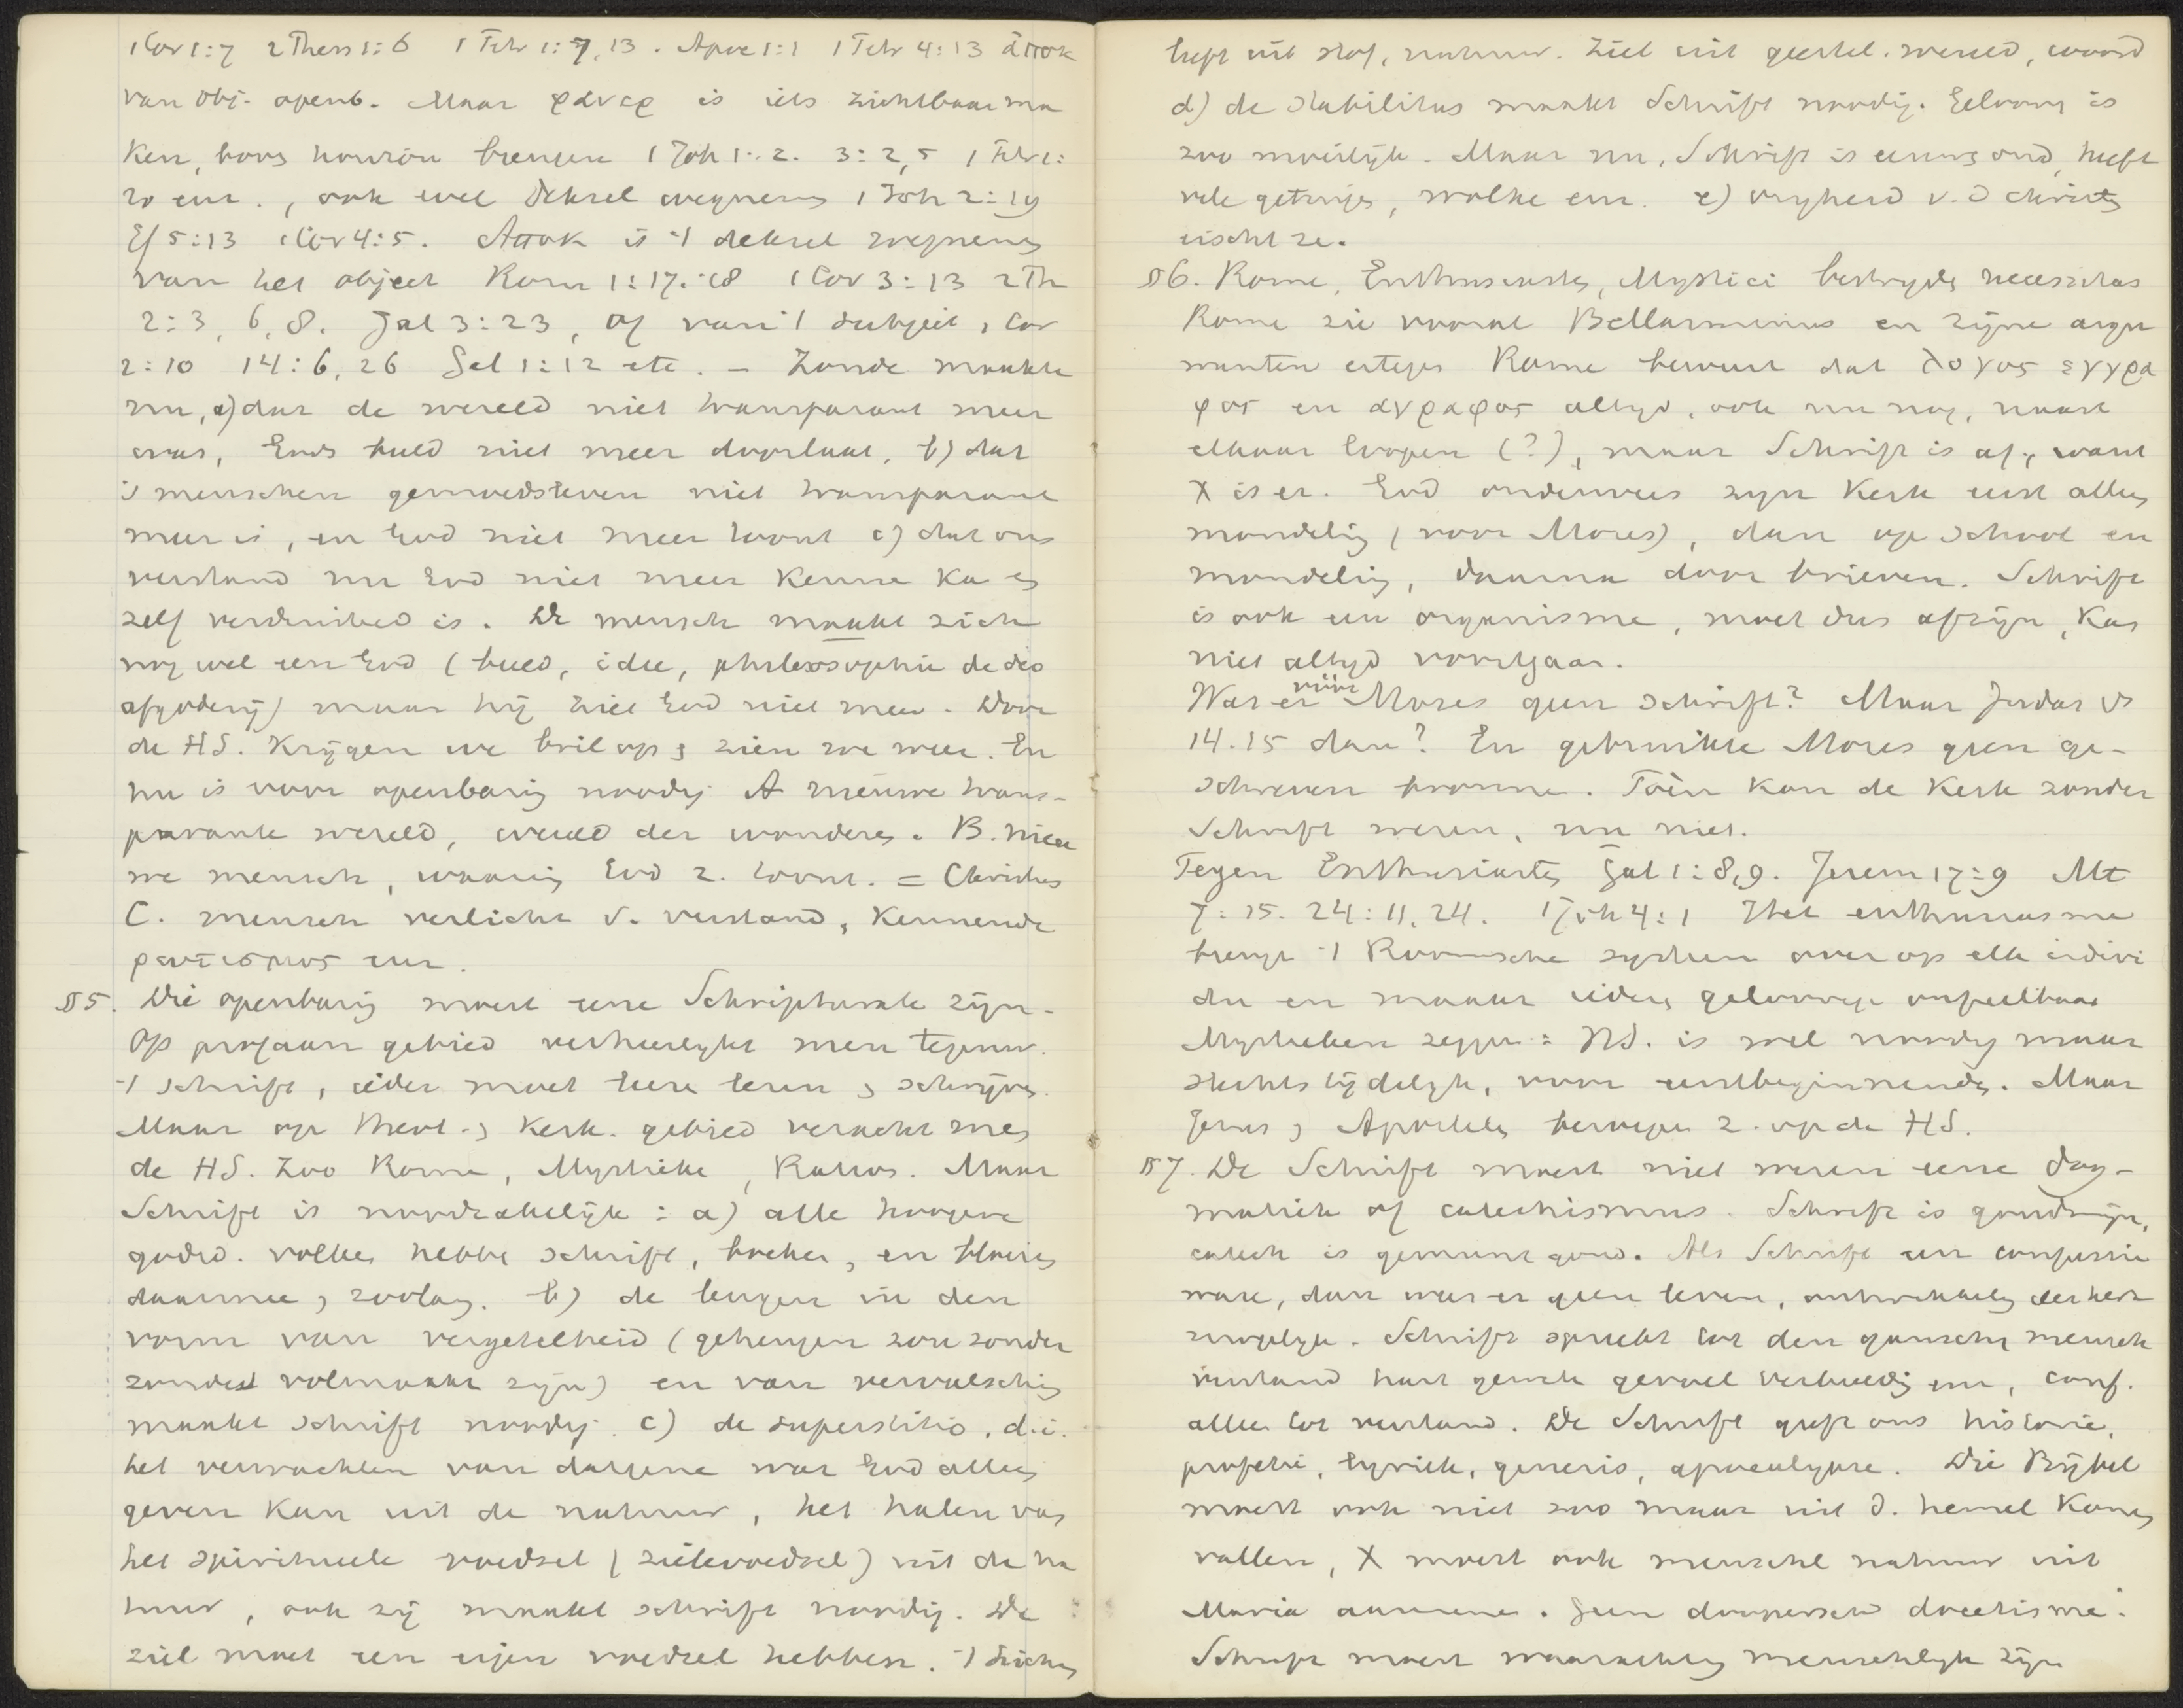 1 Cor 1:7 2 Thess 1:6 1 Petr 1:7, 13. Apoc 1:1 1 Petr 4:13 ἀποκ
van obj. openb. Maar φανερ is iets zichtbaar ma
ken, voor
brengen 1 Joh 1:2. 3:2,5 1 Petr 1:
20 enz., ook wel deksel wegnemen 1 Joh 2:19
Ef 5:13 1 Cor 4:5. Αποκ is 't deksel wegnemen
van het object Rom 1:17.18 1 Cor 3:13 2 Th
2:3, 6, 8. Gal 3:23, of van 't subject 1 Cor
2:10 14:6, 26 Gal 1:12 etc. – Zonde maakte
nu, a) dat de wereld niet transparant meer
was, Gods beeld niet meer doorlaat, b) dat
's menschen gemoedsleven niet transparant
meer is, en God niet meer toont c) dat ons
verstand nu God niet meer kennen kan en
zelf verduisterd is. De mensch maakt zich
nog wel een God (beeld, idee, philosophie de deo
afgoderij) maar hij ziet God niet meer. Door
de HS. krijgen we bril op en zien we weer. En
nu is voor openbaring noodig A nieuwe trans-
parante wereld, wereld der wonderen. B. nieu
we mensch, waarin God z. toont. = Christus
C. mensch verlicht v. verstand, kennende
φωτισμος enz.
§5. Die openbaring moest eene Schriftuurlijke zijn.
Op profaan gebied verheerlijkt men tegenw.
't schrift, ieder moet leeren lezen en schrijven.
Maar op theol. en kerk. gebied veracht men
de HS. Zoo Rome, Mystieke, Ration. Maar
Schrift is noodzakelijk: a) alle hoogere
godsd. volken hebben schrift, boeken, en bloeien
daarmee en zoolang. b) de leugen in den
vorm van vergetelheid (geheugen zou zonder
zonde volmaakt zijn) en van vervalsching
maakt schrift noodig. c) de superstitio, d.i.
het verwachten van datgene wat God alleen
geven kan uit de natuur, het halen van
het spiritueele voedsel (zielevoedsel) uit de na
tuur, ook zij maakt schrift noodig. De
ziel moet een eigen voedsel hebben. 't lichaam
heeft uit stof, natuur. Ziel uit geestel. wereld, woord
d) de stabilitas maakt Schrift noodig. Gelooven is
zoo moeilijk. Maar nu, Schrift is eeuwen oud, heeft
vele getuigen, wolke enz. e) vrijheid v. d Christen
eischt ze.
§6. Rome, Enthusiasten, Mystici bestrijden necessitas
Rome zie vooral Bellarminus en zijne argu
menten ertegen Rome beweert dat λογος εγγρα
φος en αγραφος altijd, ook nu nog, naast
elkaar loopen (?), maar Schrift is af, want
X is er. God onderwees zijn Kerk eerst alleen
mondeling (voor Mozes), dan op school en
mondeling, daarna door brieven. Schrift
is ook een organisme, moet dus afzijn, kan
niet altijd voortgaan.
Was er vóór Mozes geen schrift? Maar Judas vs
14.15 dan? En gebruikte Mozes geen ge-
schreven bronnen. Toèn kon de Kerk zonder
Schrift wezen, nu niet.
Tegen Enthusiasten Gal 1:8,9. Jerem 17:9 Mt
7:15. 24:11, 24. 1 Joh 4:1 Het enthusiasme
brengt 't Roomsche systeem over op elk indivi
du en maakt ieder geloovige onfeilbaar
Mystieken zeggen: HS. is wel noodig maar
slechts tijdelijk, voor eerstbeginnenden. Maar
Jezus en Apostelen beroepen z. op de HS.
§7. De Schrift moest niet wezen eene dog-
matiek of catechismus. Schrift is goudmijn,
catech is gemunt goud. Als Schrift een confessie
ware, dan was er geen leven, ontwikkeling der kerk
mogelijk. Schrift spreekt tot den ganschen mensch
verstand hart gemoed gevoel verbeelding enz, conf.
alleen tot verstand. De Schrift geeft ons historie,
profetie, lyriek, genesis, apocalypse. Die Bijbel
moest ook niet zoo maar uit d. hemel komen
vallen, X moest ook menschel natuur uit
Maria aannemen. Geen doopersch docetisme.
Schrift moest waarachtig menschelijk zijn